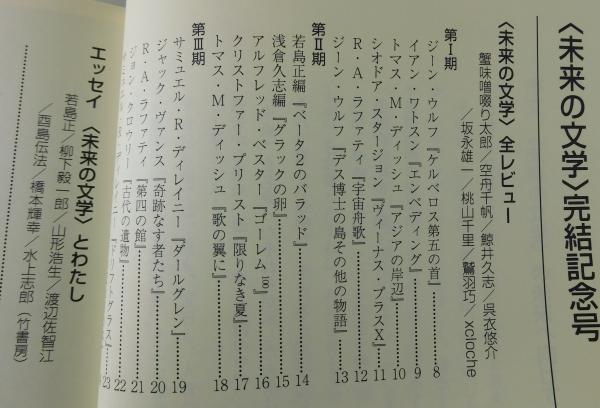 〈未来の文学〉完結記念号
〈未来の文学〉全レビュー
蟹味噌啜り太郎／空舟千帆／鯨井久志／呉衣悠介
／坂永雄一／桃山千里　鷲羽巧／xcloche
第Ⅰ期
ジーン・ウルフ『ケルベロス第五の首』 8
イアン・ワトスン『エンベディング』 9
トマス・M・ディッシュ『アジアの岸辺』 10
シオドア・スタージョン『ヴィーナス・プラスX』 11
R・A・ラファティ『宇宙舟歌』 12
ジーン・ウルフ『デス博士の島その他の物語』 13
第Ⅱ期
若島正編『ベータ2のバラッド』 14
浅倉久志編『グラックの卵』 15
アルフレッド・ベスター『ゴーレム100』 16
クリストファー・プリースト『限りなき夏』 17
トマス・M・ディッシュ『歌の翼に』 18
第Ⅲ期
サミュエル・R・ディレイニー『ダールグレン』 19
ジャック・ヴァンス『奇跡なす者たち』 20
R・A・ラファティ『第四の館』 21
ジョン・クロウリー『古代の遺物』 22
『ドリフトグラス』 23
エッセイ　〈未来の文学〉とわたし
若島正／柳下毅一郎／山形浩生／渡辺佐智江
／酉島伝法／橋本輝幸／水上志郎（竹書房）